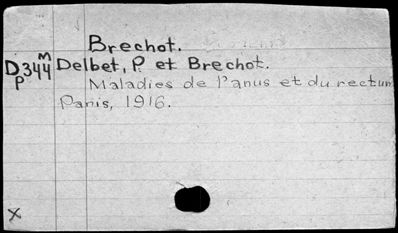 Brechot.
M
D344 Delbet, P. et Brechot.
P Maladies de l'anus et du rectum
Paris, 1916.
X